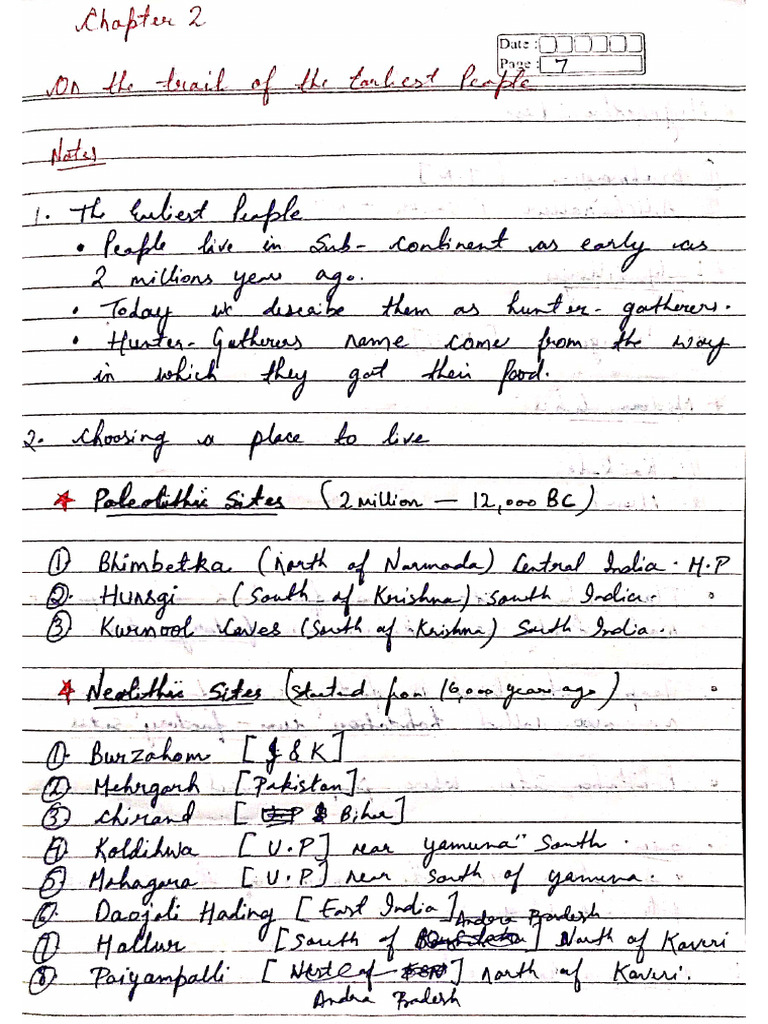 Chapter 2
Date :
Page : 7
On the trail of the Earliest People
Notes
1. The Earliest People
• People live in Sub-Continent as early as
2 millions years ago.
• Today we describe them as hunter-gatherers.
• Hunter-Gatherers name come from the way
in which they got their food.
2. Choosing a place to live
* Paleolithic Sites (2 million — 12,000 BC)
① Bhimbetka (North of Narmada) Central India. M.P
②. Hunsgi (South of Krishna) South India.
③ Kurnool Caves (South of Krishna) South India.
* Neolithic Sites (started from 10,000 years ago)
①. Burzahom [J & K]
② Mehrgarh [Pakistan]
③ Chirand [Bihar]
④ Koldihwa [U.P] near yamuna South.
⑤ Mahagara [U.P] near south of yamuna.
⑥. Daojali Hading [East India]
Andra Pradesh
⑦ Hallur [South of] North of Kaveri
⑧ Paiyampalli [] North of Kaveri.
Andra Pradesh